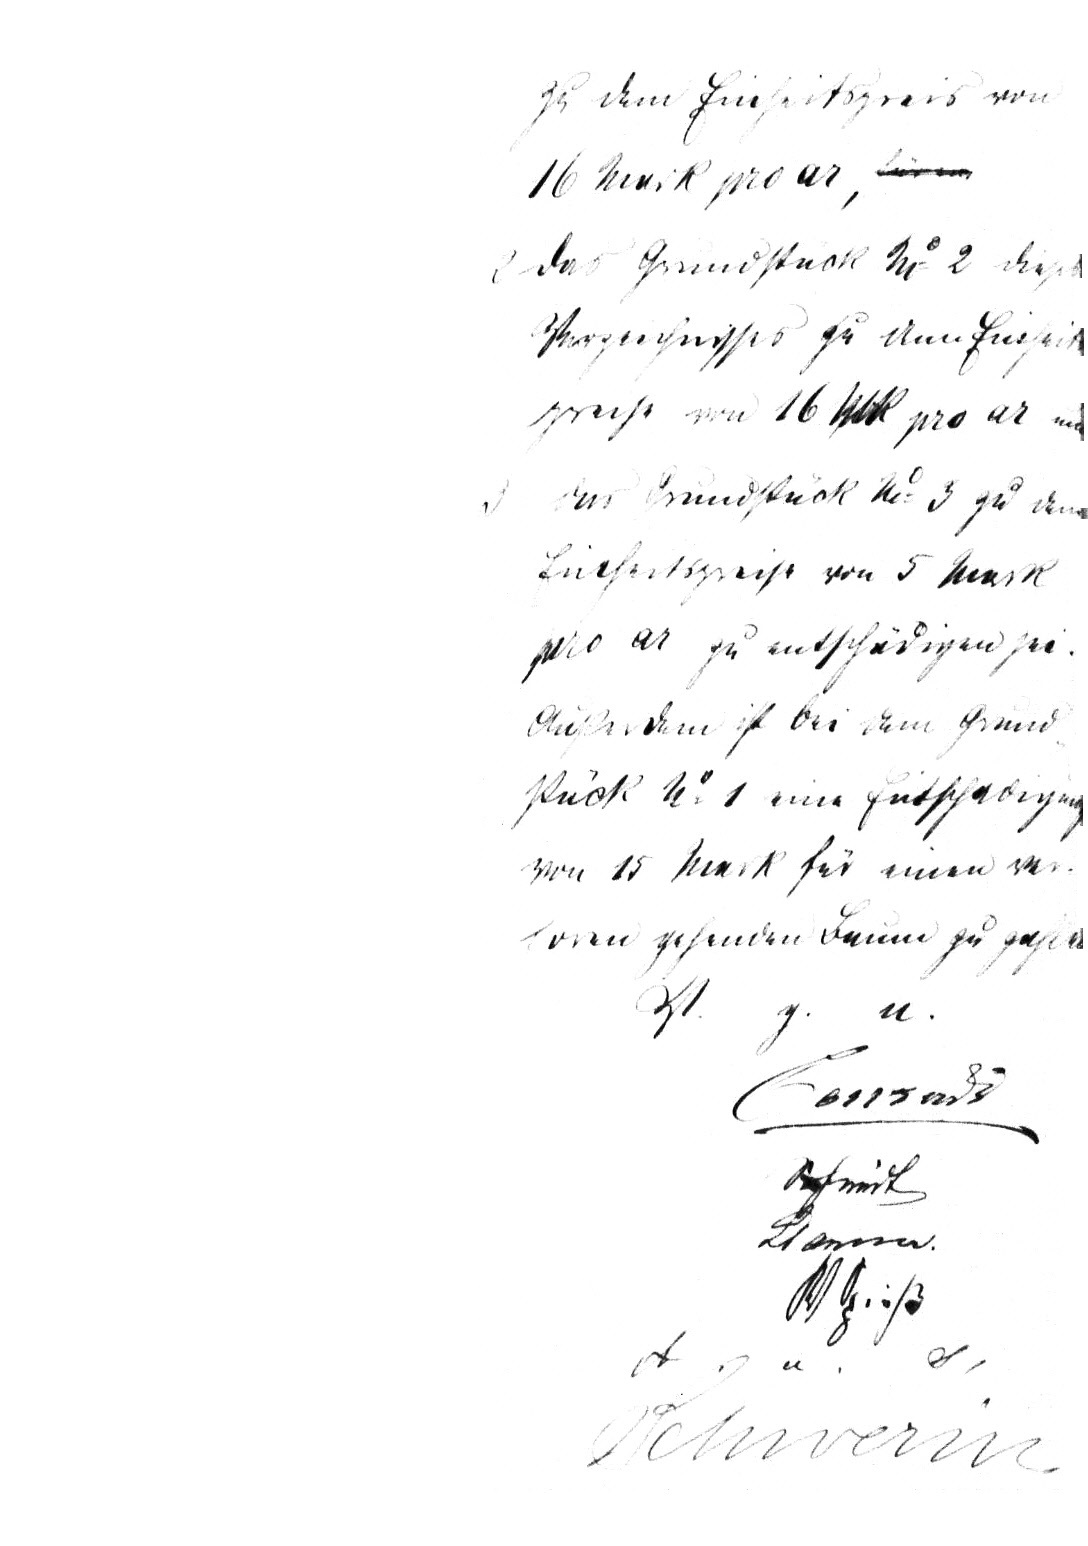 zu dem Einheitspreis von
16 Mark pro ar,
2 das Grundstück No 2 dieses
Verzeichnisses zu dem Einheits
preise von 16 Mk pro ar und
3 das Grundstück No 3 zu dem
Einheitspreise von 5 Mark
pro ar zu entschädigen sei.
Außerdem ist bei dem Grund
stück No 1 eine Entschädigung
von 15 Mark für einen ver-
loren gehenden Baum zu zahlen
V. g. u.
Conrads
Schmidt
W Spieß
a. u. s.
Schwerin